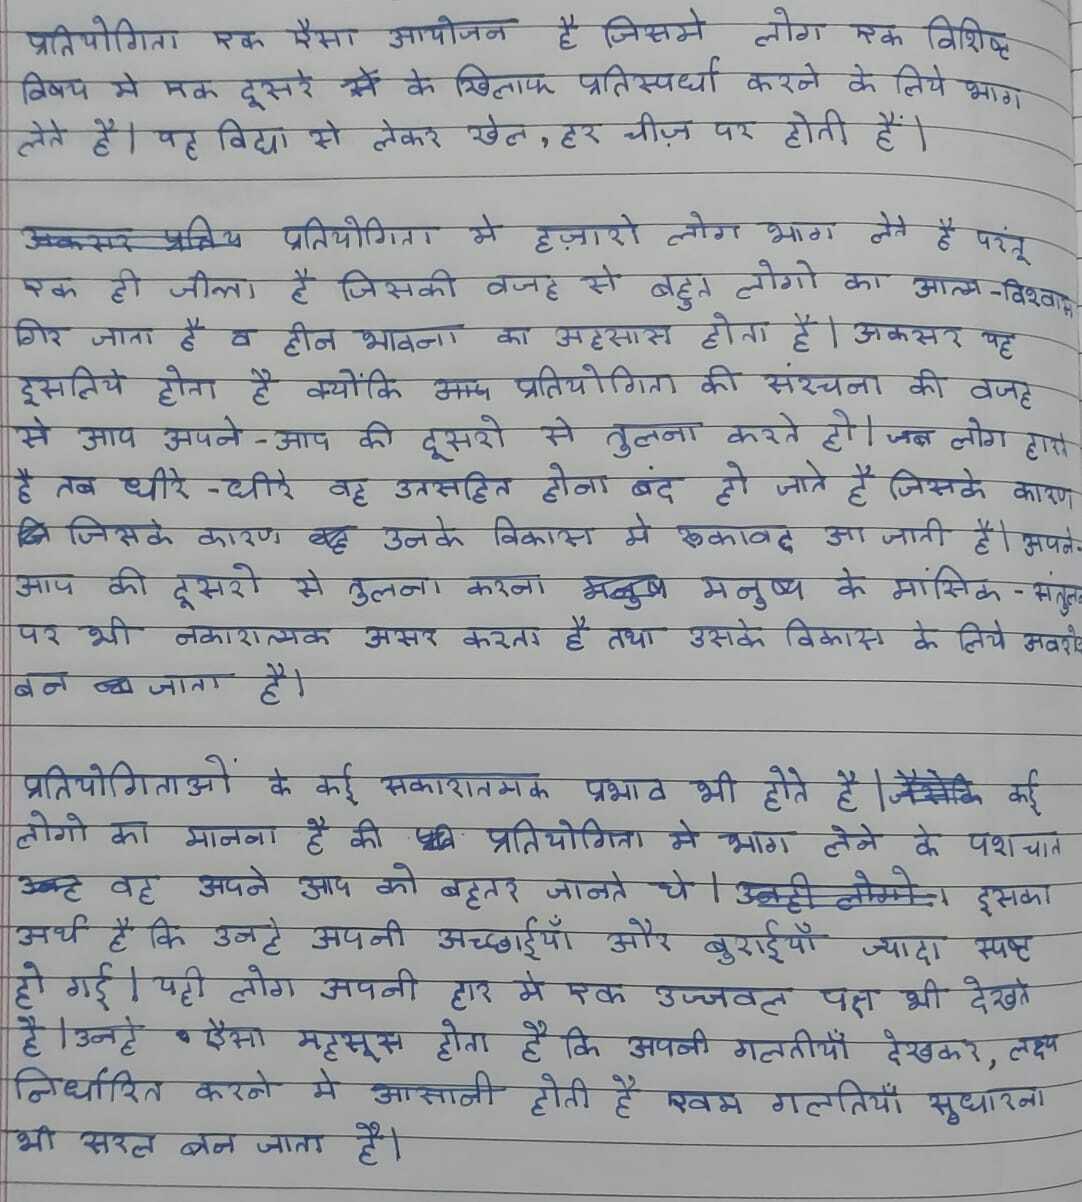 प्रतियोगिता एक ऐसा आयोजन है जिसमे लोग एक विशिष्ट
विषय मे एक दूसरे के खिलाफ प्रतिस्पर्धा करने के लिये भाग
लेते है। यह विद्या से लेकर खेल, हर चीज़ पर होती हैं।
प्रतियोगिता मे हज़ारो लोग भाग लेते है परंतू
एक ही जीता है जिसकी वजह से बहुत लोगो का आत्म-विश्वास
गिर जाता है व हीन भावना का अहसास होता है। अकसर यह
इसलिये होता है क्योंकि प्रतियोगिता की संरचना की वजह
से आप अपने-आप की दूसरो से तुलना करते हो। जब लोग हारते
है तब धीरे-धीरे वह उतसहित होना बंद हो जाते है जिसके कारण
जिसके कारण उनके विकास मे रूकावट आ जाती है। अपने-
आप की दूसरो से तुलना करना मनुष्य के मांसिक-संतुलन
पर भी नकारात्मक असर करता है तथा उसके विकास के लिये अवरोध
बन जाता है।
प्रतियोगिताओं के कई सकारातमक प्रभाव भी होते है। कई
लोगो का मानना है की प्रतियोगिता मे भाग लेने के पशचात
वह अपने आप को बहतर जानते थे। इसका
अर्थ है कि उनहे अपनी अच्छाईयाँ और बुराईयाँ ज्यादा स्पष्ट
हो गई। यही लोग अपनी हार मे एक उज्जवल पक्ष भी देखते
है। उनहे ऐसा महसूस होता है कि अपनी गलतीयाँ देखकर, लक्ष्य
निर्धारित करने मे आसानी होती है एवम गलतियाँ सुधारना
भी सरल बन जाता है।